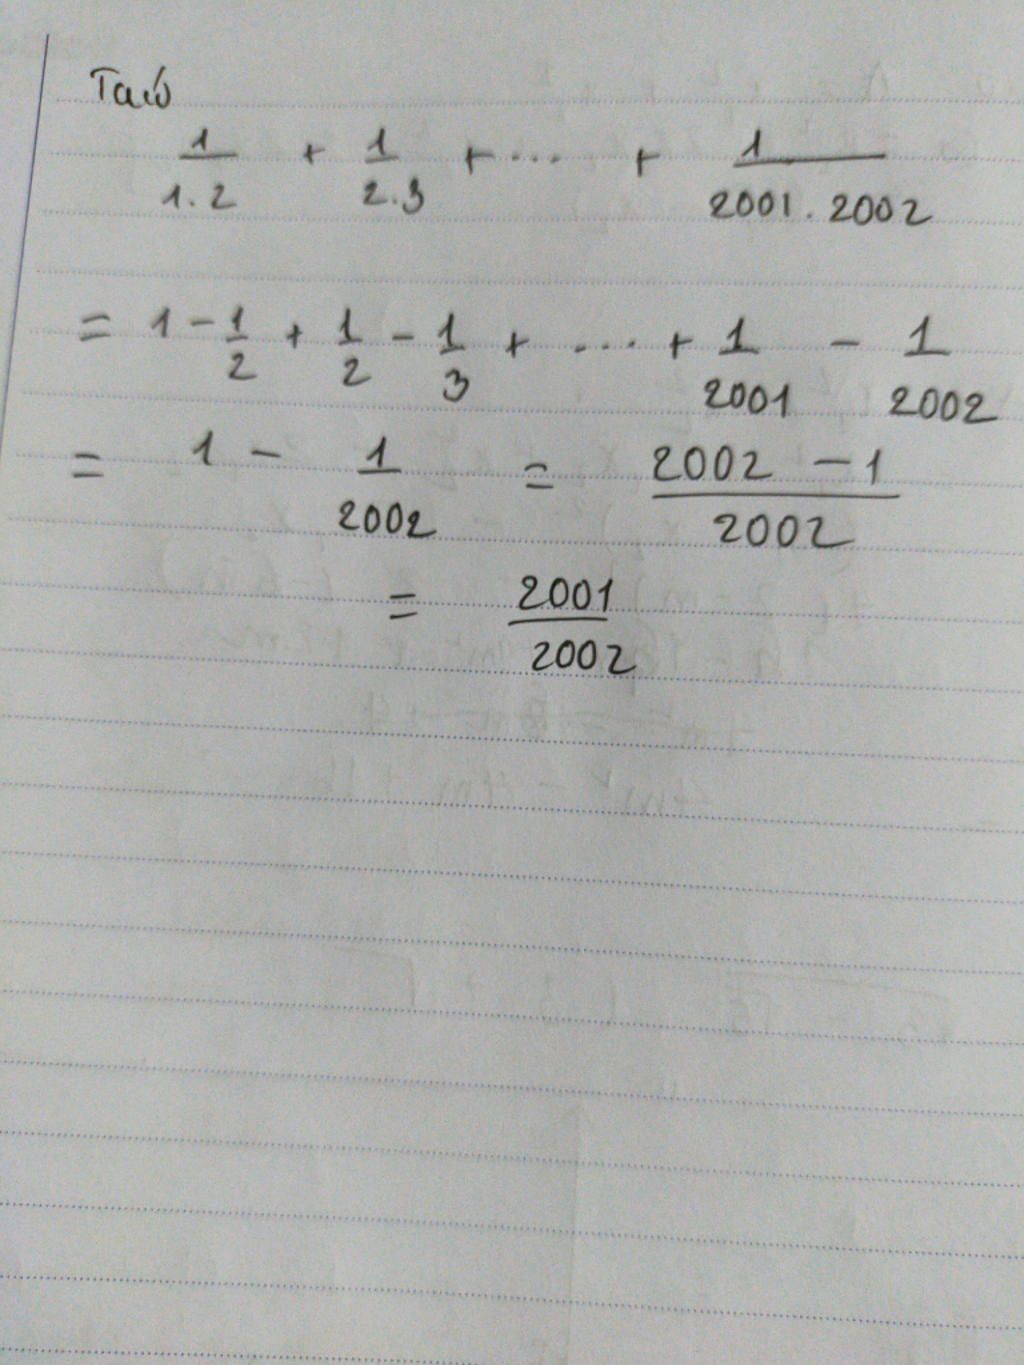 Taώ
1/1.2 + 1/2.3 + ... + 1/2001.2002
= 1 - 1/2 + 1/2 - 1/3 + .... + 1/2001 - 1/2002
= 1 - 1/2002 = 2002 - 1/2002
= 2001/2002